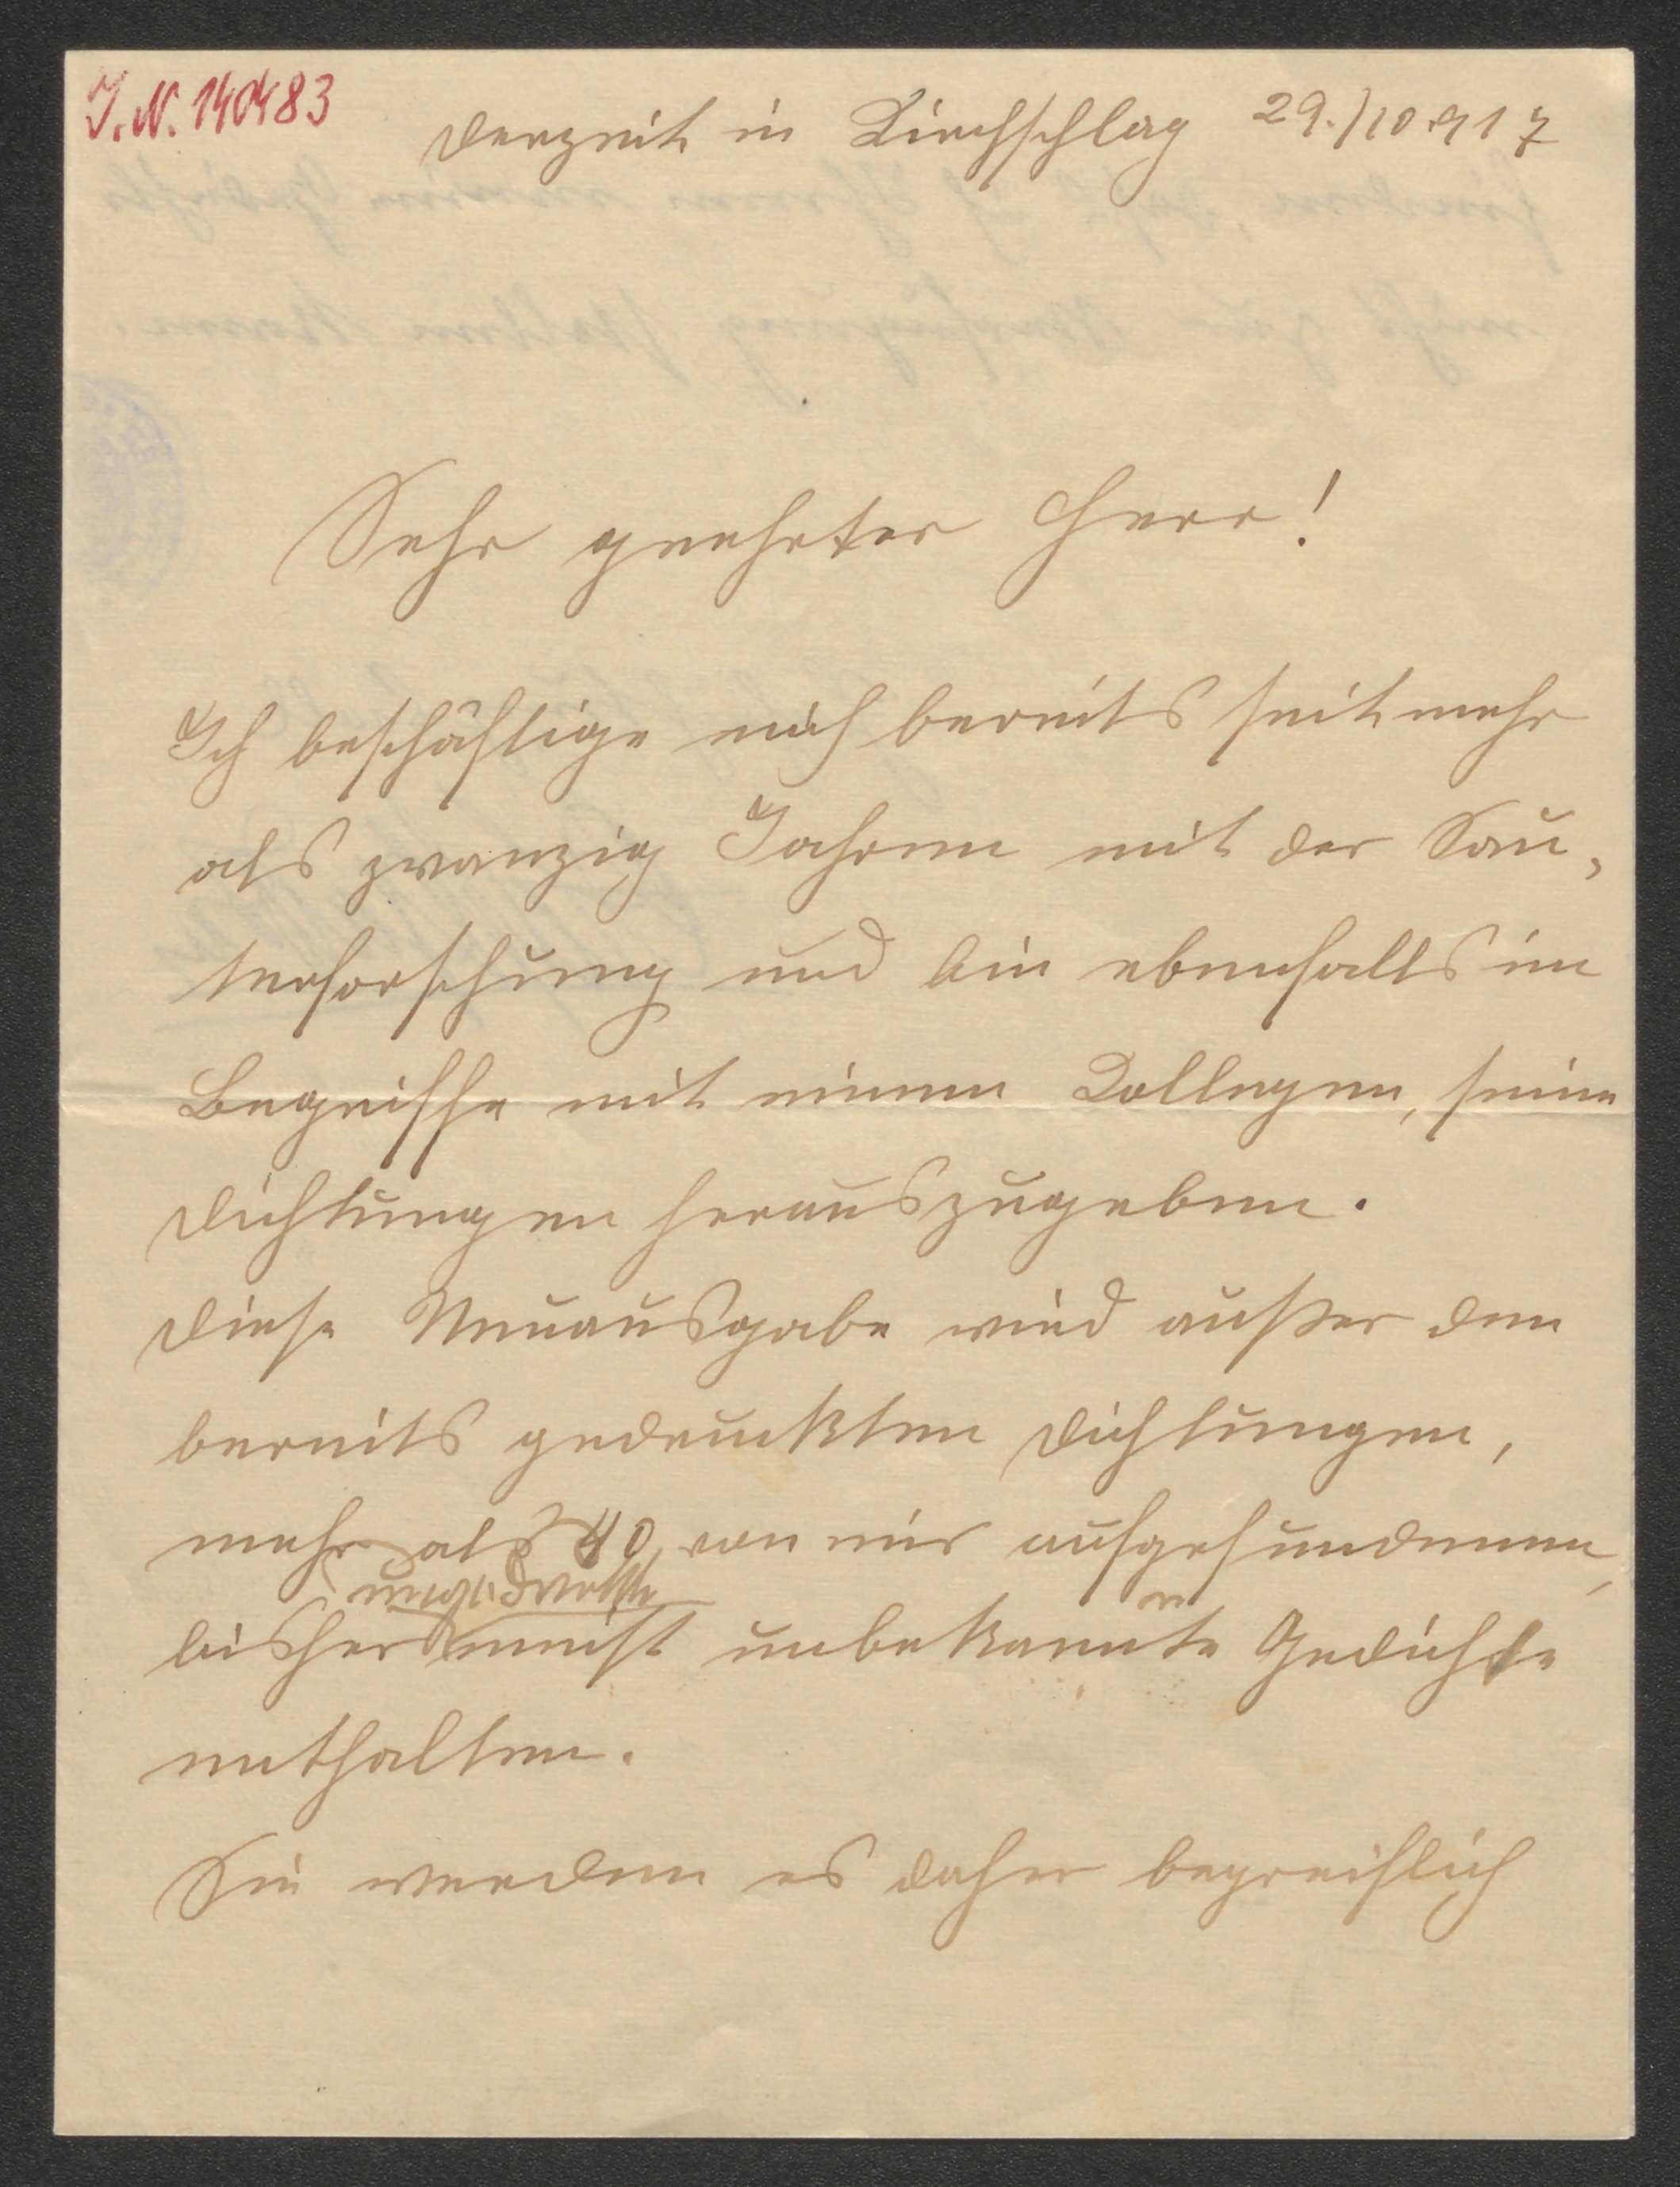 J. N. 140483
derzeit in Kirchschlag 29./10.917
Sehr geehrter Herr!
Ich beschäftige mich bereits seit mehr
als zwanzig Jahren mit der Sau-
terforschung und bin ebenfalls im
Begriffe mit einem Kollegen, seine
Dichtungen herauszugeben.
Diese Neuausgabe wird außer den
bereits gedruckten Dichtungen,
mehr als 40 von mir aufgefundenen,
ungedruckte
bisher meist unbekannte Gedichte
enthalten.
Sie werden es daher begreiflich